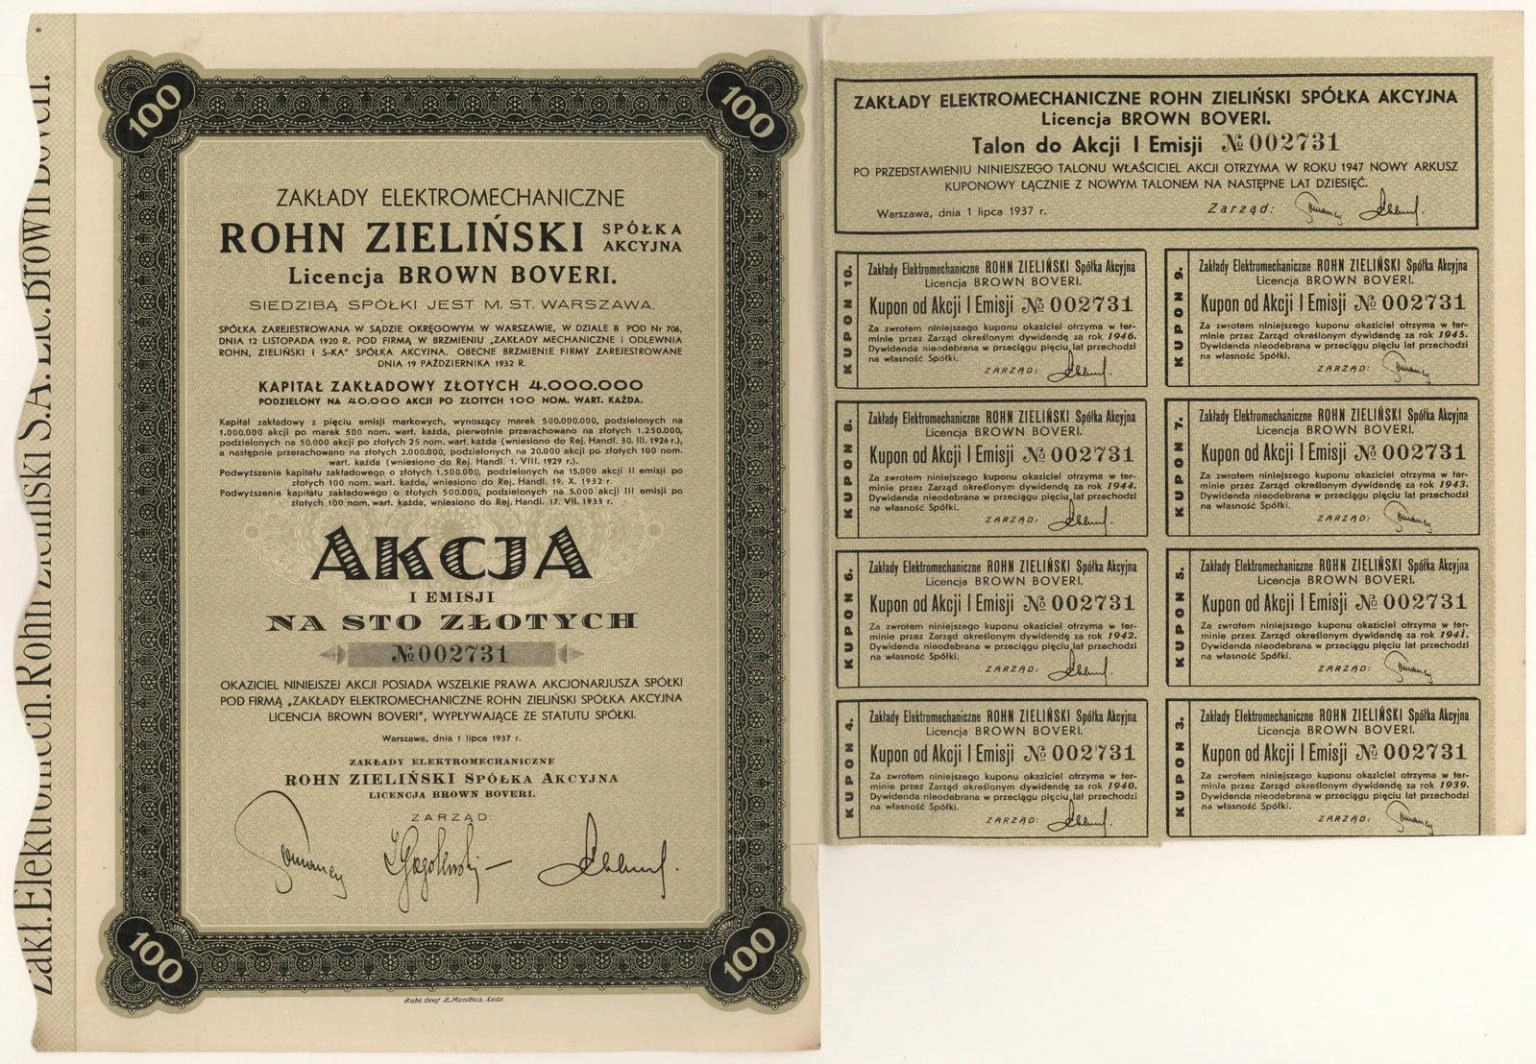 Zakł. Elektromech. Rohn Zieliński S.A. Lic. Brown Boveri.
100
100
ZAKŁADY ELEKTROMECHANICZNE
ROHN ZIELIŃSKI SPÓŁKA AKCYJNA
Licencja BROWN BOVERI.
SIEDZIBĄ SPÓŁKI JEST M. ST. WARSZAWA.
SPÓŁKA ZAREJESTROWANA W SĄDZIE OKRĘGOWYM W WARSZAWIE, W DZIALE B POD Nr 706,
DNIA 12 LISTOPADA 1920 R. POD FIRMĄ W BRZMIENIU „ZAKŁADY MECHANICZNE i ODLEWNIA
ROHN, ZIELIŃSKI I S-KA" SPÓŁKA AKCYJNA. OBECNE BRZMIENIE FIRMY ZAREJESTROWANE
DNIA 19 PAŹDZIERNIKA 1932 R.
KAPITAŁ ZAKŁADOWY ZŁOTYCH 4.000.000
PODZIELONY NA 40.000 AKCJI PO ZŁOTYCH 100 NOM. WART. KAŻDA.
Kapitał zakładowy z pięciu emisji markowych, wynoszący marek 500.000.000, podzielonych na
1.000.000 akcji po marek 500 nom. wart. każda, pierwotnie przerachowano na złotych 1.250.000,
podzielonych na 50.000 akcji po złotych 25 nom. wart. każda (wniesiono do Rej. Handl. 30. III. 1926 r.),
a następnie przerachowano na złotych 2.000.000, podzielonych na 20.000 akcji po złotych 100 nom.
wart. każda (wniesiono do Rej. Handl. 1. VIII. 1929 r.).
Podwyższenie kapitału zakładowego o złotych 1.500.000, podzielonych na 15.000 akcji II emisji po
złotych 100 nom. wart. każda, wniesiono do Rej. Handl. 19. X. 1932 r.
Podwyższenie kapitału zakładowego o złotych 500.000, podzielonych na 5.000 akcji III emisji po
złotych 100 nom. wart. każda, wniesiono do Rej. Handl. 17. VII. 1933 r.
AKCJA
I EMISJI
NA STO ZŁOTYCH
№ 002731
OKAZICIEL NINIEJSZEJ AKCJI POSIADA WSZELKIE PRAWA AKCJONARJUSZA SPÓŁKI
POD FIRMĄ „ZAKŁADY ELEKTROMECHANICZNE ROHN ZIELIŃSKI SPÓŁKA AKCYJNA
LICENCJA BROWN BOVERI", WYPŁYWAJĄCE ZE STATUTU SPÓŁKI.
Warszawa, dnia 1 lipca 1937 r.
ZAKŁADY ELEKTROMECHANICZNE
ROHN ZIELIŃSKI SPÓŁKA AKCYJNA
LICENCJA BROWN BOVERI.
ZARZĄD:
100
100
Zakł. Graf. Z. Manitius, Łódź
ZAKŁADY ELEKTROMECHANICZNE ROHN ZIELIŃSKI SPÓŁKA AKCYJNA
Licencja BROWN BOVERI.
Talon do Akcji I Emisji № 002731
PO PRZEDSTAWIENIU NINIEJSZEGO TALONU WŁAŚCICIEL AKCJI OTRZYMA W ROKU 1947 NOWY ARKUSZ
KUPONOWY ŁĄCZNIE Z NOWYM TALONEM NA NASTĘPNE LAT DZIESIĘĆ.
Warszawa, dnia 1 lipca 1937 r. Zarząd:
KUPON 10.
Zakłady Elektromechaniczne ROHN ZIELIŃSKI Spółka Akcyjna
Licencja BROWN BOVERI.
Kupon od Akcji I Emisji № 002731
Za zwrotem niniejszego kuponu okaziciel otrzyma w ter-
minie przez Zarząd określonym dywidendę za rok 1946.
Dywidenda nieodebrana w przeciągu pięciu lat przechodzi
na własność Spółki.
ZARZĄD:
KUPON 9.
Zakłady Elektromechaniczne ROHN ZIELIŃSKI Spółka Akcyjna
Licencja BROWN BOVERI.
Kupon od Akcji I Emisji № 002731
Za zwrotem niniejszego kuponu okaziciel otrzyma w ter-
minie przez Zarząd określonym dywidendę za rok 1945.
Dywidenda nieodebrana w przeciągu pięciu lat przechodzi
na własność Spółki.
ZARZĄD:
KUPON 8.
Zakłady Elektromechaniczne ROHN ZIELIŃSKI Spółka Akcyjna
Licencja BROWN BOVERI.
Kupon od Akcji I Emisji № 002731
Za zwrotem niniejszego kuponu okaziciel otrzyma w ter-
minie przez Zarząd określonym dywidendę za rok 1944.
Dywidenda nieodebrana w przeciągu pięciu lat przechodzi
na własność Spółki.
ZARZĄD:
KUPON 7.
Zakłady Elektromechaniczne ROHN ZIELIŃSKI Spółka Akcyjna
Licencja BROWN BOVERI.
Kupon od Akcji I Emisji № 002731
Za zwrotem niniejszego kuponu okaziciel otrzyma w ter-
minie przez Zarząd określonym dywidendę za rok 1943.
Dywidenda nieodebrana w przeciągu pięciu lat przechodzi
na własność Spółki.
ZARZĄD:
KUPON 6.
Zakłady Elektromechaniczne ROHN ZIELIŃSKI Spółka Akcyjna
Licencja BROWN BOVERI.
Kupon od Akcji I Emisji № 002731
Za zwrotem niniejszego kuponu okaziciel otrzyma w ter-
minie przez Zarząd określonym dywidendę za rok 1942.
Dywidenda nieodebrana w przeciągu pięciu lat przechodzi
na własność Spółki.
ZARZĄD:
KUPON 5.
Zakłady Elektromechaniczne ROHN ZIELIŃSKI Spółka Akcyjna
Licencja BROWN BOVERI.
Kupon od Akcji I Emisji № 002731
Za zwrotem niniejszego kuponu okaziciel otrzyma w ter-
minie przez Zarząd określonym dywidendę za rok 1941.
Dywidenda nieodebrana w przeciągu pięciu lat przechodzi
na własność Spółki.
ZARZĄD:
KUPON 4.
Zakłady Elektromechaniczne ROHN ZIELIŃSKI Spółka Akcyjna
Licencja BROWN BOVERI.
Kupon od Akcji I Emisji № 002731
Za zwrotem niniejszego kuponu okaziciel otrzyma w ter-
minie przez Zarząd określonym dywidendę za rok 1940.
Dywidenda nieodebrana w przeciągu pięciu lat przechodzi
na własność Spółki.
ZARZĄD:
KUPON 3.
Zakłady Elektromechaniczne ROHN ZIELIŃSKI Spółka Akcyjna
Licencja BROWN BOVERI.
Kupon od Akcji I Emisji № 002731
Za zwrotem niniejszego kuponu okaziciel otrzyma w ter-
minie przez Zarząd określonym dywidendę za rok 1939.
Dywidenda nieodebrana w przeciągu pięciu lat przechodzi
na własność Spółki.
ZARZĄD: